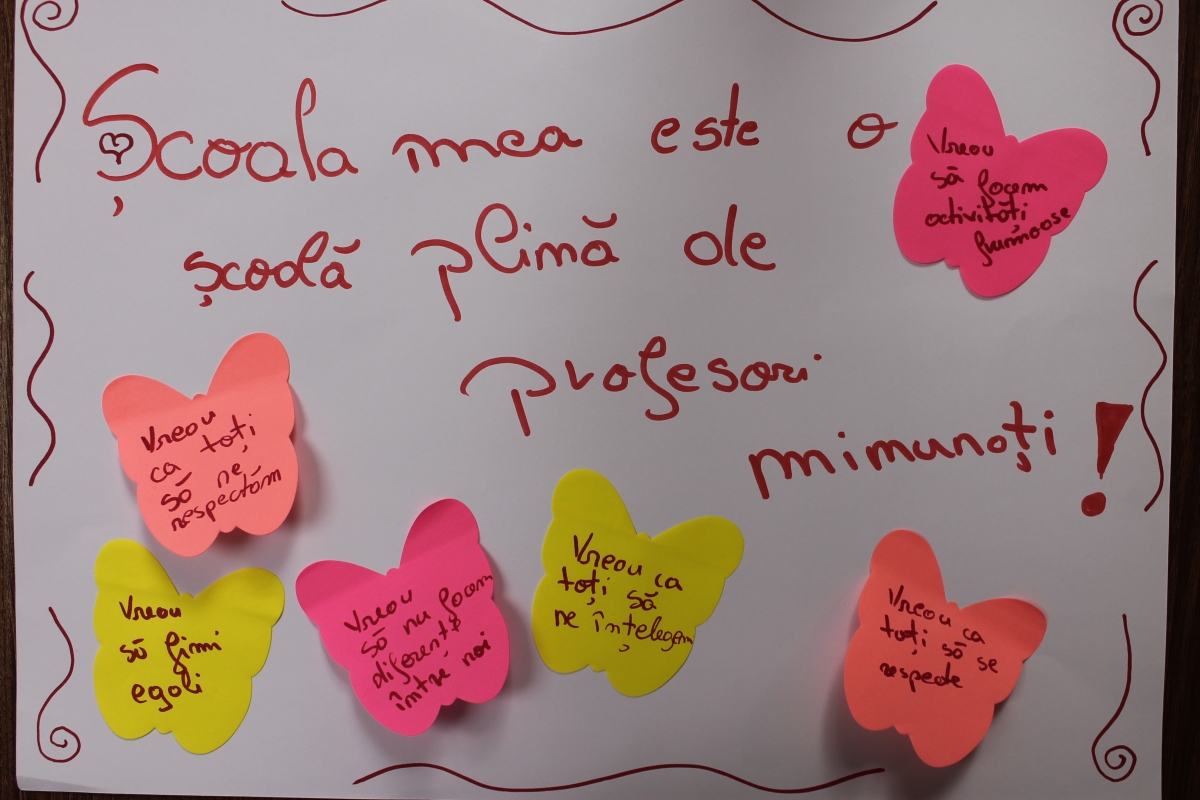 Școala mea este o
școală plină de
profesori
minunați!
Vreau
să facem
activități
frumoase
Vreau
ca toți
să ne
respectăm
Vreau
să fimi
egali
Vreau
să nu facem
diferenți
între noi
Vreau ca
toți să
ne înțelegem
Vreau ca
toți să se
respecte